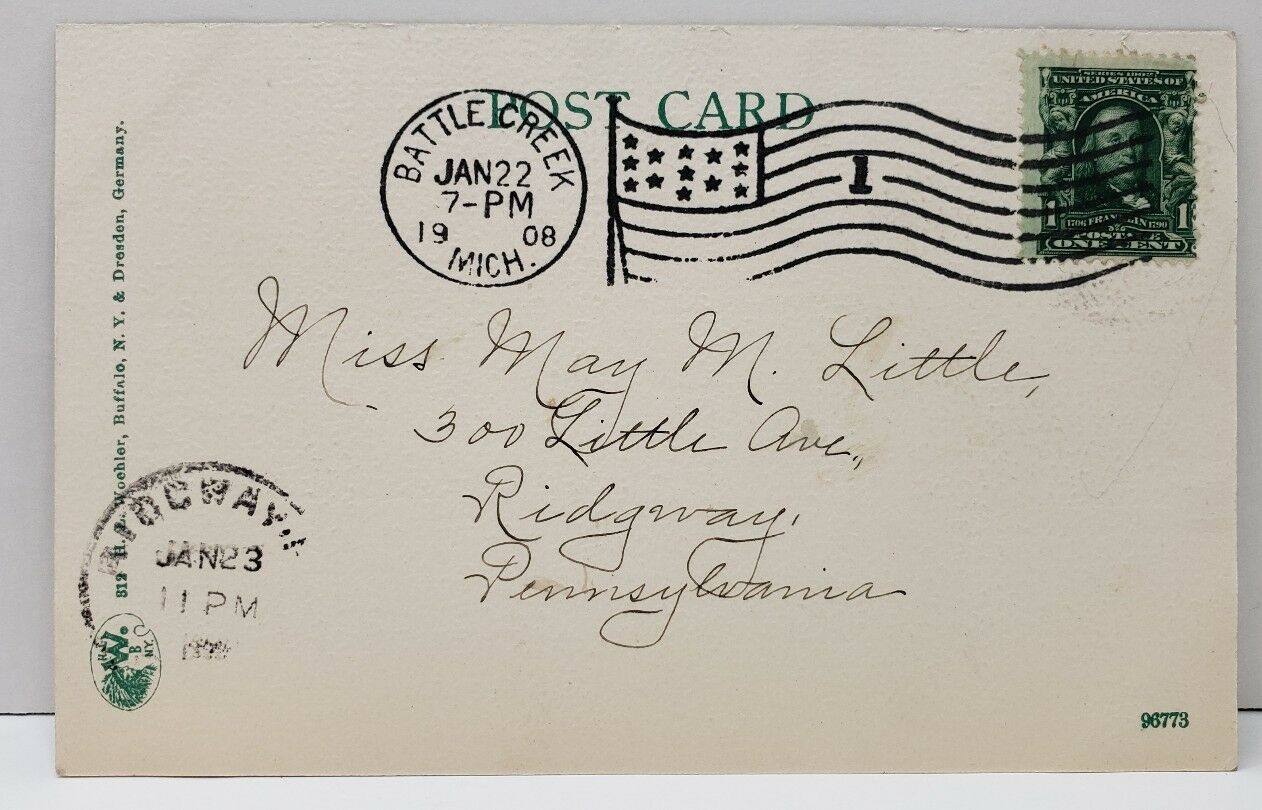 POST CARD
BATTLE CREEK
JAN 22
7-PM
19 08
MICH.
1
SERIES 1902
UNITED STATES OF
AMERICA
1706 FRANKLIN 1790
1 1
POSTAGE
ONE CENT
Miss May M. Little,
300 Little Ave.,
Ridgway,
Pennsylvania
312 H. Woehler, Buffalo, N. Y. & Dresden, Germany.
RIDGWAY
JAN 23
11 PM
W.
B
N.Y.
96773